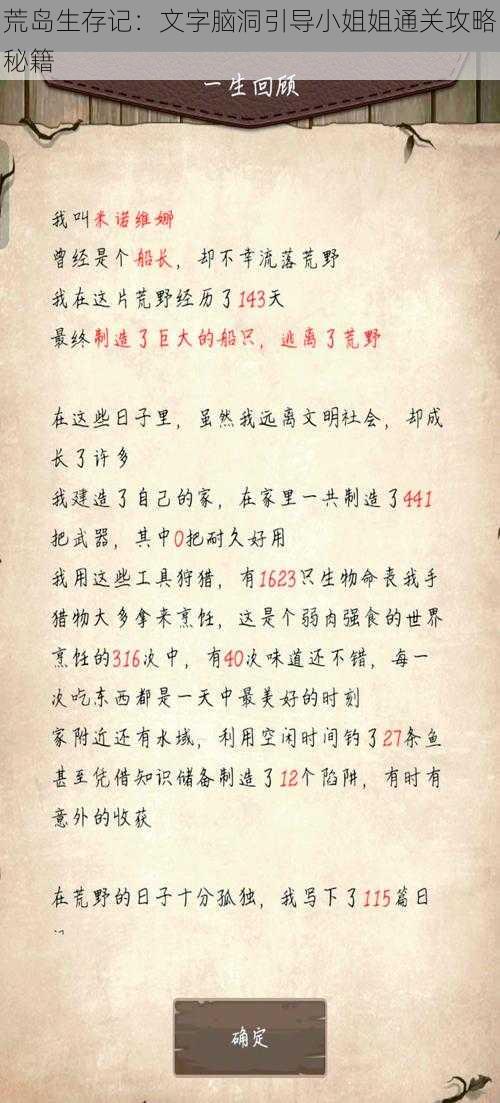 荒岛生存记：文字脑洞引导小姐姐通关攻略
秘籍
一生回顾
我叫米诺维娜
曾经是个船长，却不幸流落荒野
我在这片荒野经历了143天
最终制造了巨大的船只，逃离了荒野
在这些日子里，虽然我远离文明社会，却成
长了许多
我建造了自己的家，在家里一共制造了441
把武器，其中0把耐久好用
我用这些工具狩猎，有1623只生物命丧我手
猎物大多拿来烹饪，这是个弱肉强食的世界
烹饪的316次中，有40次味道还不错，每一
次吃东西都是一天中最美好的时刻
家附近还有水域，利用空闲时间钓了27条鱼
甚至凭借知识储备制造了12个陷阱，有时有
意外的收获
在荒野的日子十分孤独，我写下了115篇日
确定